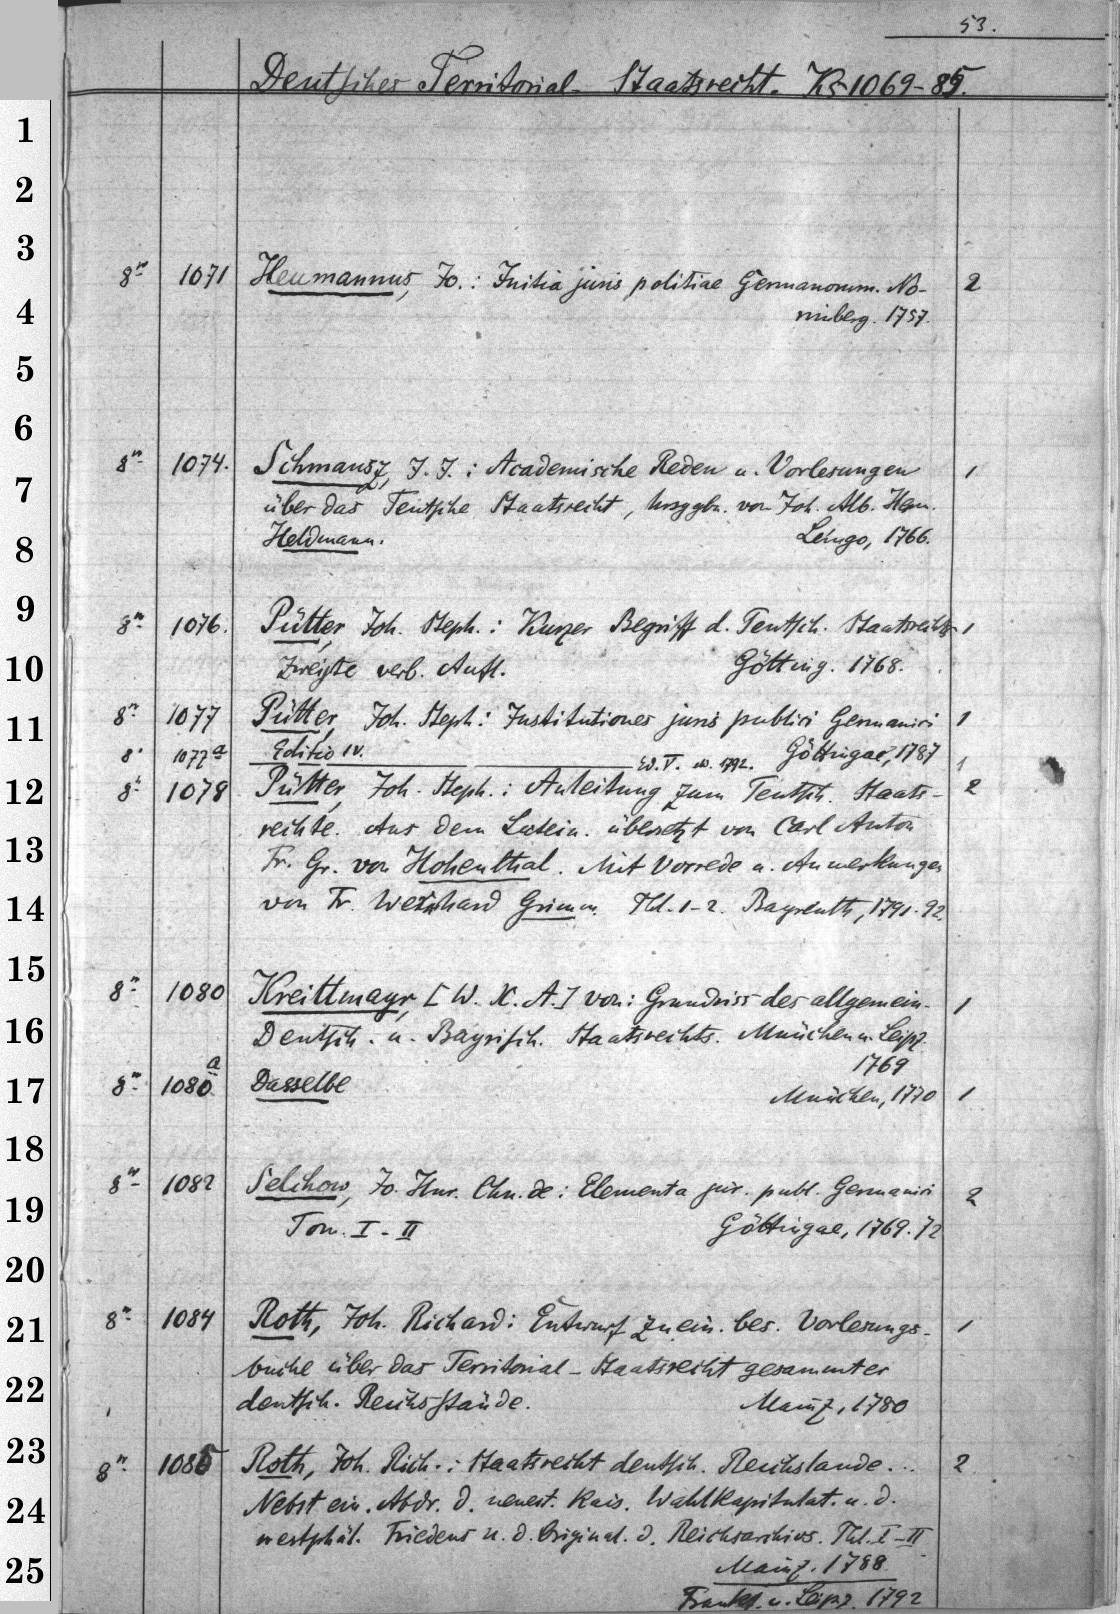 53.
Deutsches Territorial-Staatsrecht. Ks 1069-85.
8º 1071 Heumannus, Jo.: Initia juris politiae Germanorum. No- 2
rimberg. 1757.
8º 1074. Schmausz, J. J.: Academische Reden u. Vorlesungen 1
über das Teutsche Staatsrecht, hrsggbn. von Joh. Alb. Herm.
Heldmann. Lemgo, 1766.
8º 1076. Pütter, Joh. Steph.: Kurzer Begriff d. Teutsch. Staatsrechts 1
Zweyte verb. Aufl. Götting. 1768.
8º 1077 Pütter, Joh. Steph: Institutiones juris publici Germanici 1
Editio IV. Göttingae, 1787
8º 1077a Ed. V. 1792. 1
8º 1078 Pütter, Joh. Steph.: Anleitung zum Teutsch. Staats- 2
rechte. Aus dem Latein. übersetzt von Carl Anton
Fr. Gr. von Hohenthal. Mit Vorrede u. Anmerkungen
von Fr. Wernhard Grimm. Thl. 1-2. Bayreuth, 1791-92.
8º 1080 Kreittmayr, [W. X. A.] von: Grundriss des allgemein. 1
Deutsch. u. Bayrisch. Staatsrechts. München u. Leipz.
1769
8º 1080a Dasselbe München, 1770 1
8º 1082 Selchow, Jo. Hnr. Chn. de: Elementa jur. publ. Germanici 2
Tom. I-II Göttingae, 1769.72
8º 1084 Roth, Joh. Richard: Entwurf zu ein. bes. Vorlesungs- 1
buche über das Territorial-Staatsrecht gesammter
deutsch. Reichsstände. Mainz, 1780
8º 1085 Roth, Joh. Rich.: Staatsrecht deutsch. Reichslande... 2
Nebst ein. Abdr. d. neuest. Kais. Wahlkapitulat. u. d.
westphäl. Friedens n. d. Original. d. Reichsarchivs. Thl. I-II
Mainz. 1788.
Frankf. u. Leipz. 1792
1
2
3
4
5
6
7
8
9
10
11
12
13
14
15
16
17
18
19
20
21
22
23
24
25